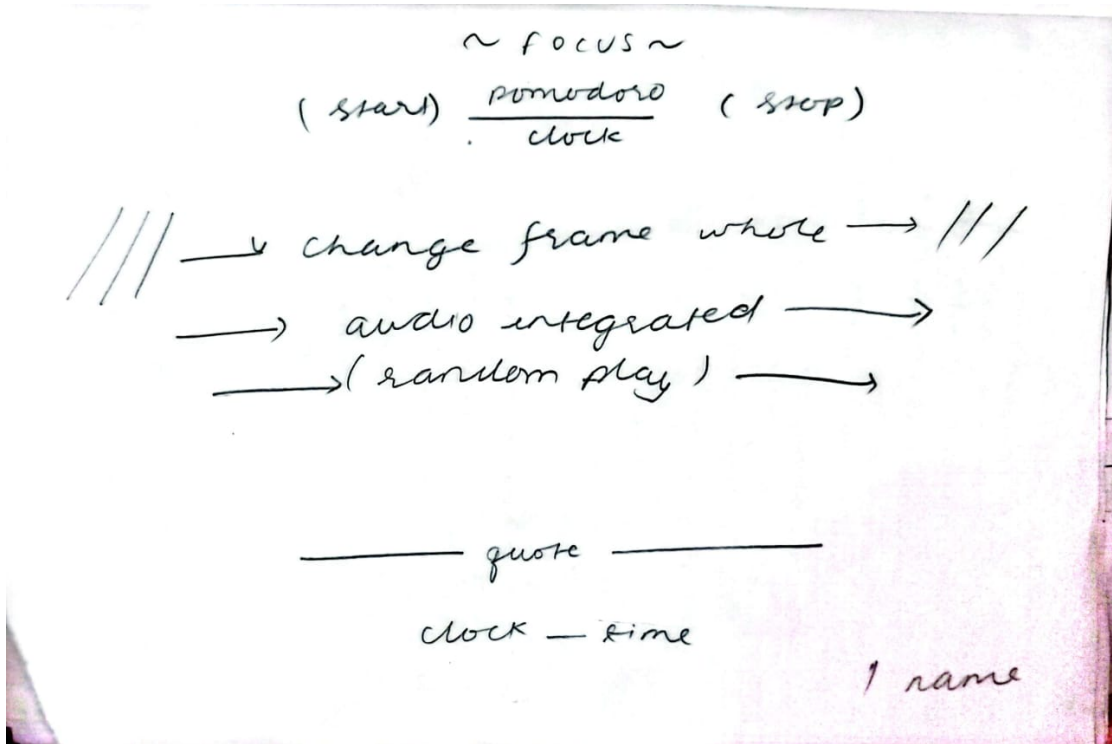 ~ FOCUS ~
(start) pomodoro (stop)
clock
/// → change frame whole → ///
→ audio integrated →
→ (random play) →
quote
clock — time
1 name